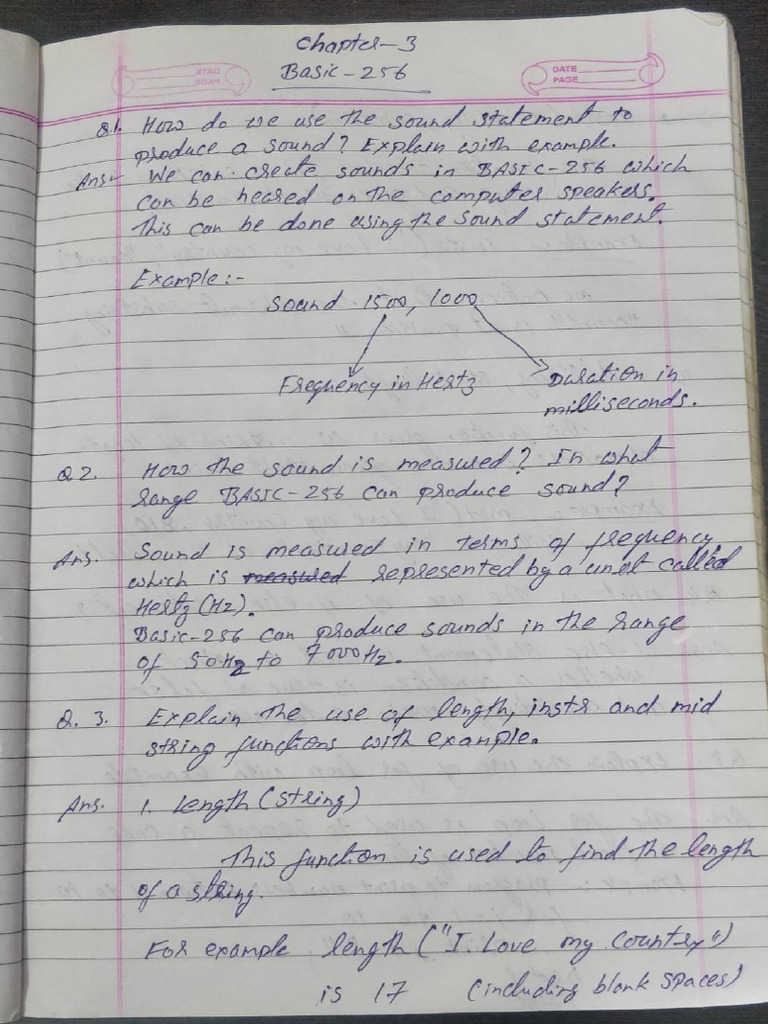 Chapter-3
Basic-256
DATE
PAGE
Q.1. How do we use the sound statement to
produce a sound? Explain with example.
Ans- We can create sounds in BASIC-256 which
can be heared on the computer speakers.
This can be done using the sound statement.
Example:-
Sound 1500, 1000
Frequency in Hertz
Duration in
milliseconds.
Q.2. How the sound is measured? In what
range BASIC-256 can produce sound?
Ans. Sound is measured in terms of frequency
which is measured represented by a unit called
Hertz (Hz).
Basic-256 can produce sounds in the range
of 50Hz to 7000Hz.
Q.3. Explain the use of length, instr and mid
string functions with example.
Ans. 1. Length (string)
This function is used to find the length
of a string.
For example length ("I Love my Country")
is 17 (including blank spaces)